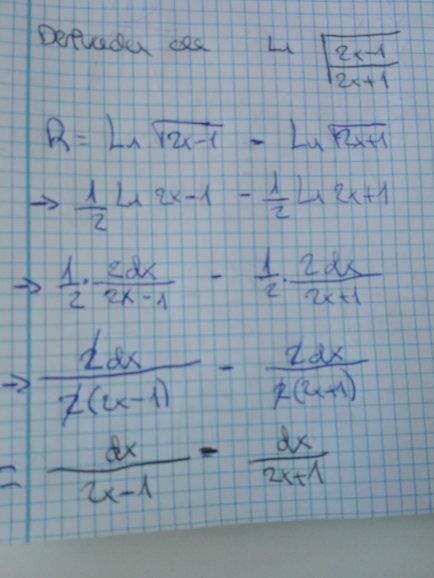 Derivada de Ln √(2x-1/2x+1)
R = Ln √2x-1 - Ln √2x+1
→ 1/2 Ln 2x-1 - 1/2 Ln 2x+1
→ 1/2 · 2dx/2x-1 - 1/2 · 2dx/2x+1
→ 2dx/2(2x-1) - 2dx/2(2x+1)
= dx/2x-1 - dx/2x+1